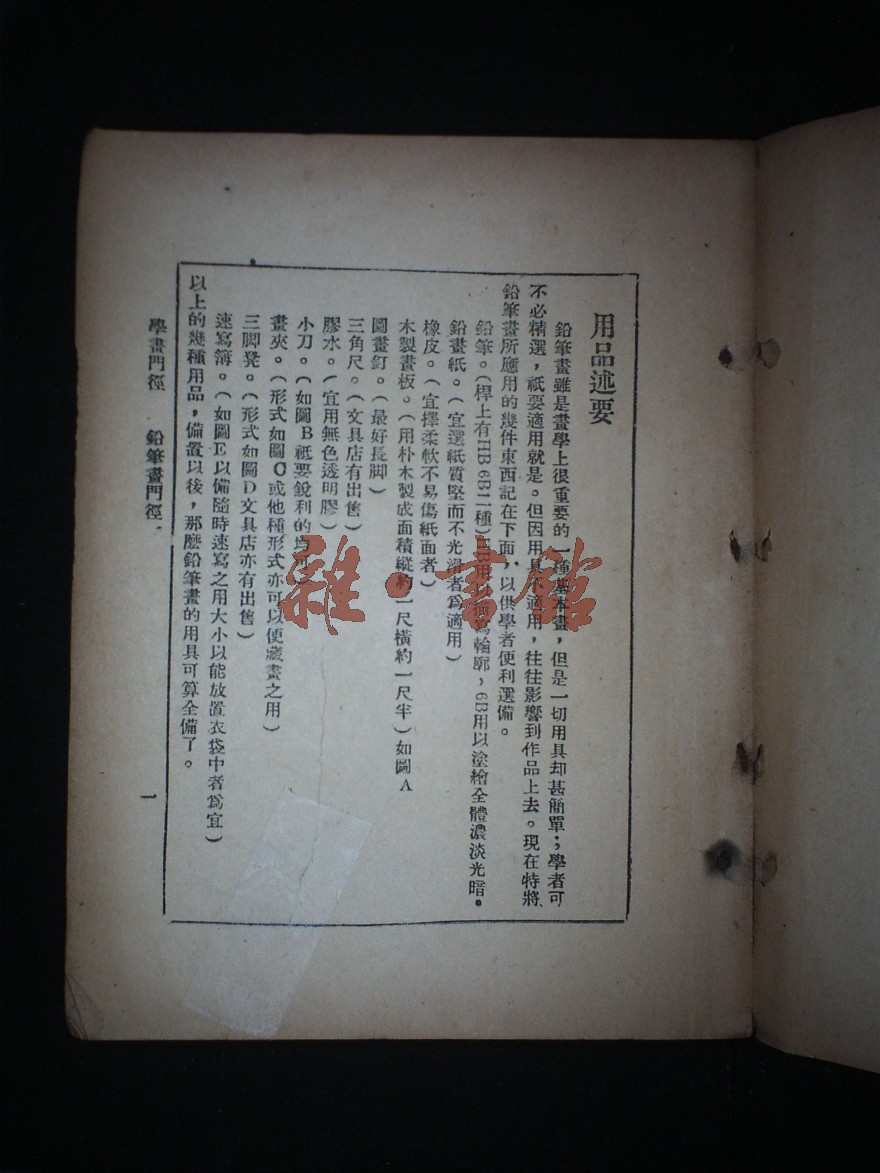 用品述要
鉛筆畫雖是畫學上很重要的一種基本畫，但是一切用具却甚簡單；學者可
不必精選，祇要適用就是。但因用具不適用，往往影響到作品上去。現在特將
鉛筆畫所應用的幾件東西記在下面，以供學者便利選備。
鉛筆。(桿上有HB 6B二種)HB用以描寫輪廓，6B用以塗繪全體濃淡光暗。
鉛畫紙。(宜選紙質堅而不光滑者爲適用)
橡皮。(宜擇柔軟不易傷紙面者)
木製畫板。(用朴木製成面積縱約一尺橫約一尺半)如圖A
圖畫釘。(最好長脚)
三角尺。(文具店有出售)
膠水。(宜用無色透明膠)
小刀。(如圖B祇要銳利的均可)
畫夾。(形式如圖C或他種形式亦可以便藏畫之用)
三脚凳。(形式如圖D文具店亦有出售)
速寫簿。(如圖E以備隨時速寫之用大小以能放置衣袋中者爲宜)
以上的幾種用品，備置以後，那麽鉛筆畫的用具可算全備了。
學畫門徑 鉛筆畫門徑
一
雜·書館